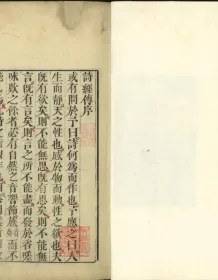 詩經傳序
或有問於予曰詩何為而作也予應之曰人
生而靜天之性也感於物而動性之欲也夫
既有欲矣則不能無思既有思矣則不能無
言既有言矣則言之所不能盡而發於咨嗟
咏歎之餘者必有自然之音響節族而不